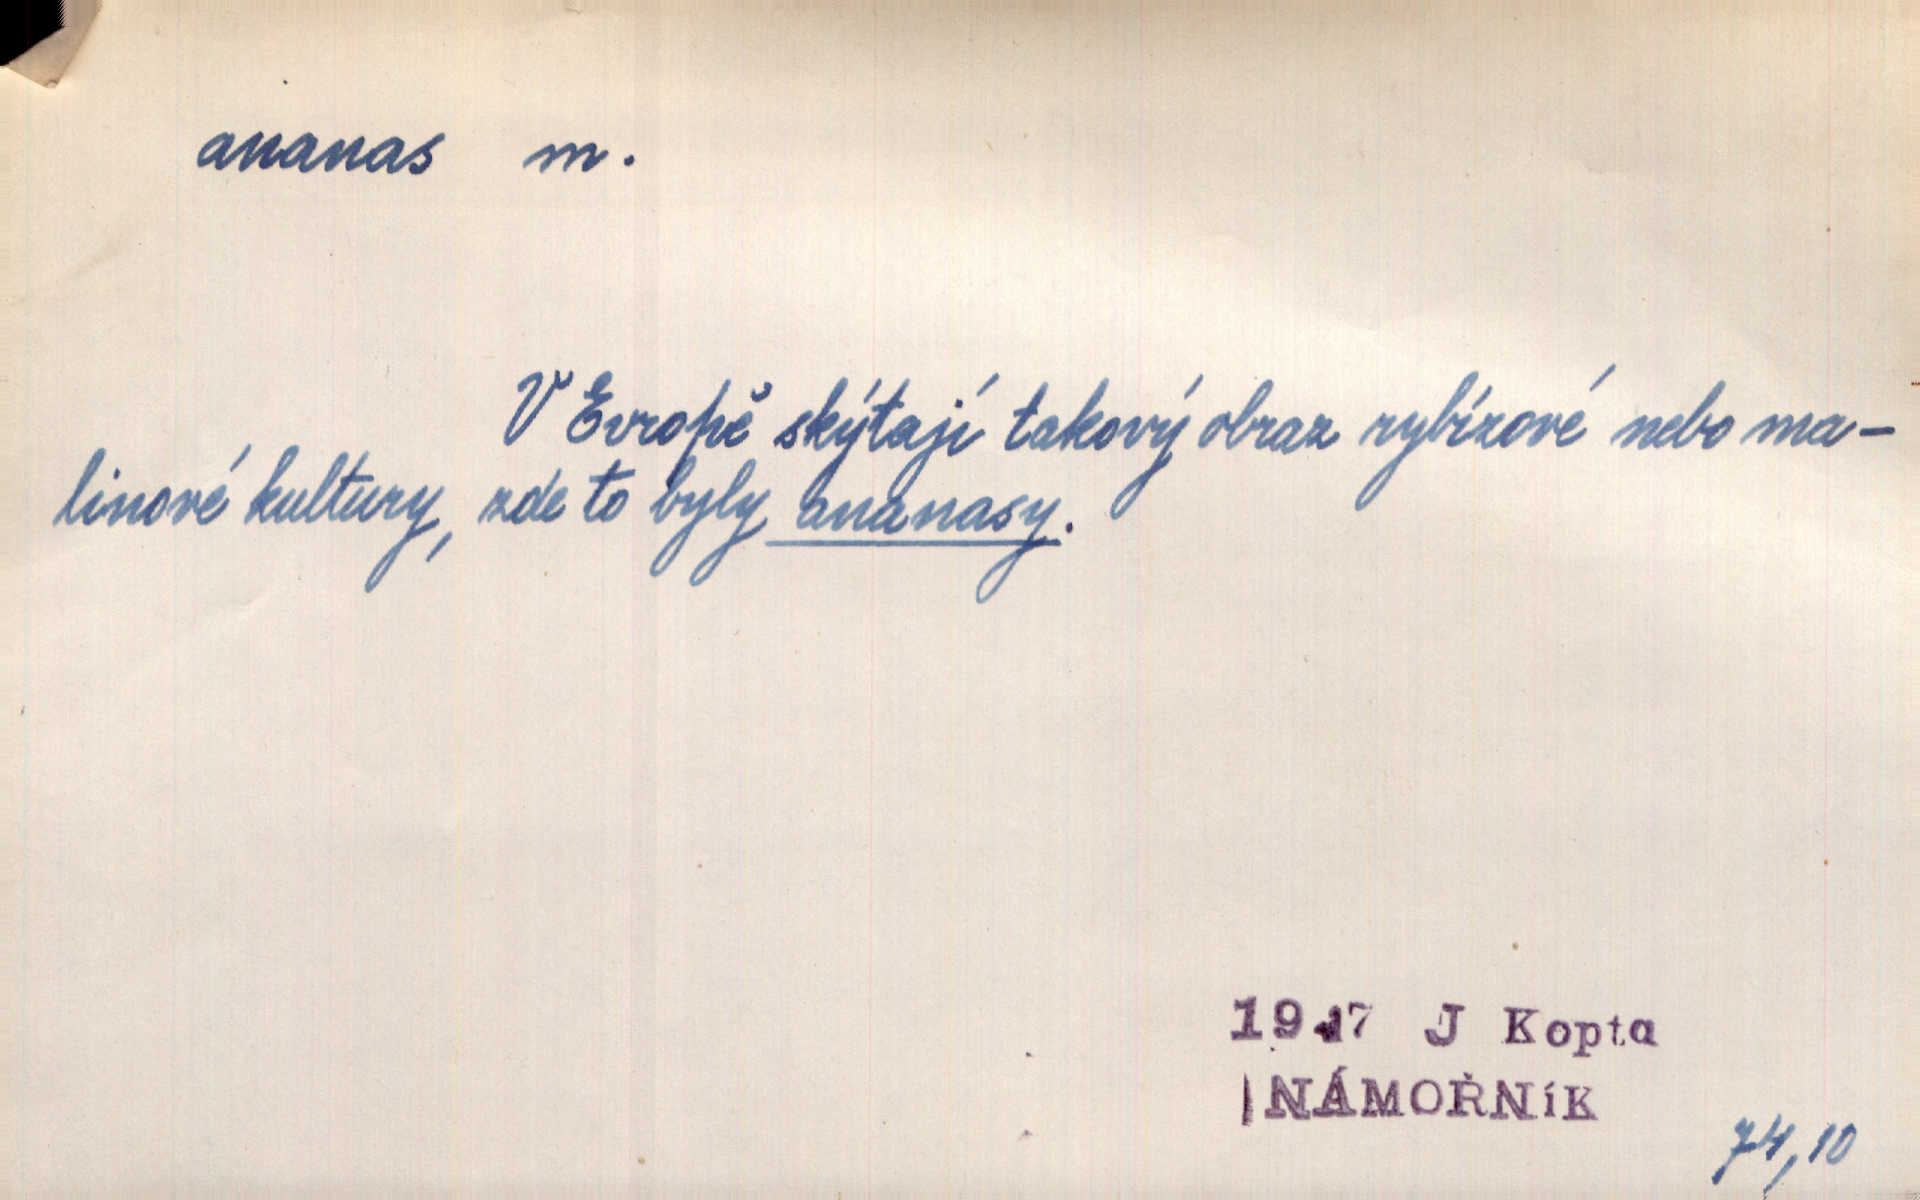 ananas m.
V Evropě skýtají takový obraz rybízové nebo ma-
linové kultury, zde to byly ananasy.
J Kopta
NÁMOŘNÍK
74,10